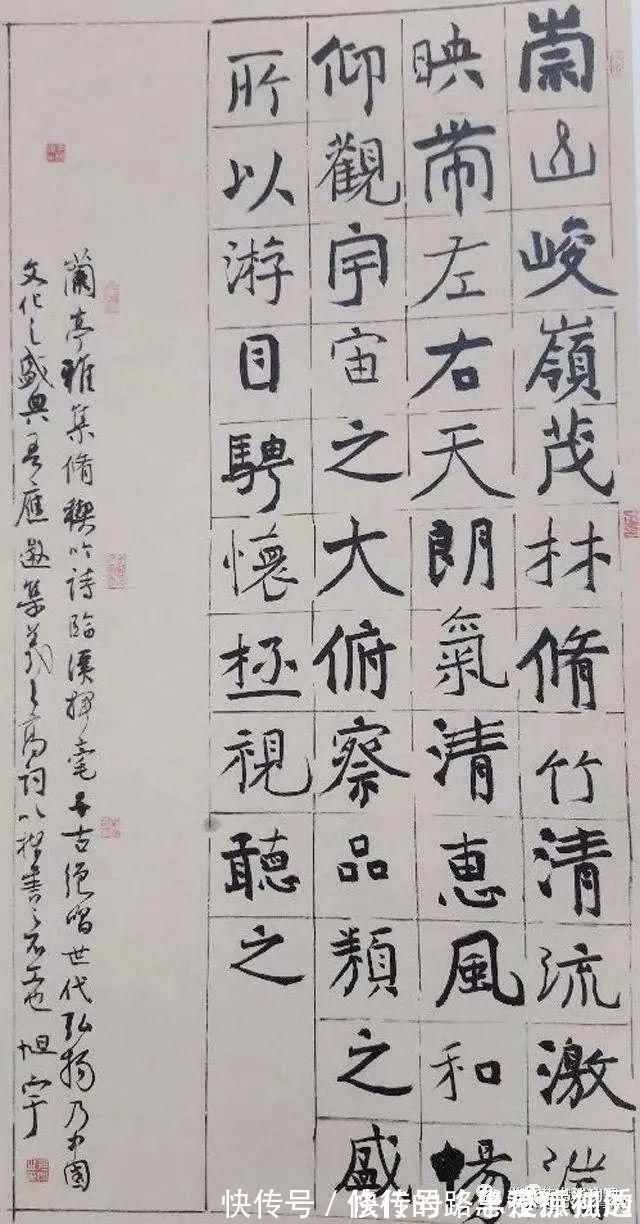 崇山峻嶺茂林脩竹清流激湍
映帶左右天朗氣清惠風和暢
仰觀宇宙之大俯察品類之盛
所以游目騁懷極視聽之
蘭亭雅集脩禊吟詩臨溪揮毫千古绝唱世代弘揚乃中國
文化之盛典吾應邀集羲之高詞以楷書之不工也 旭宇
快传号 /